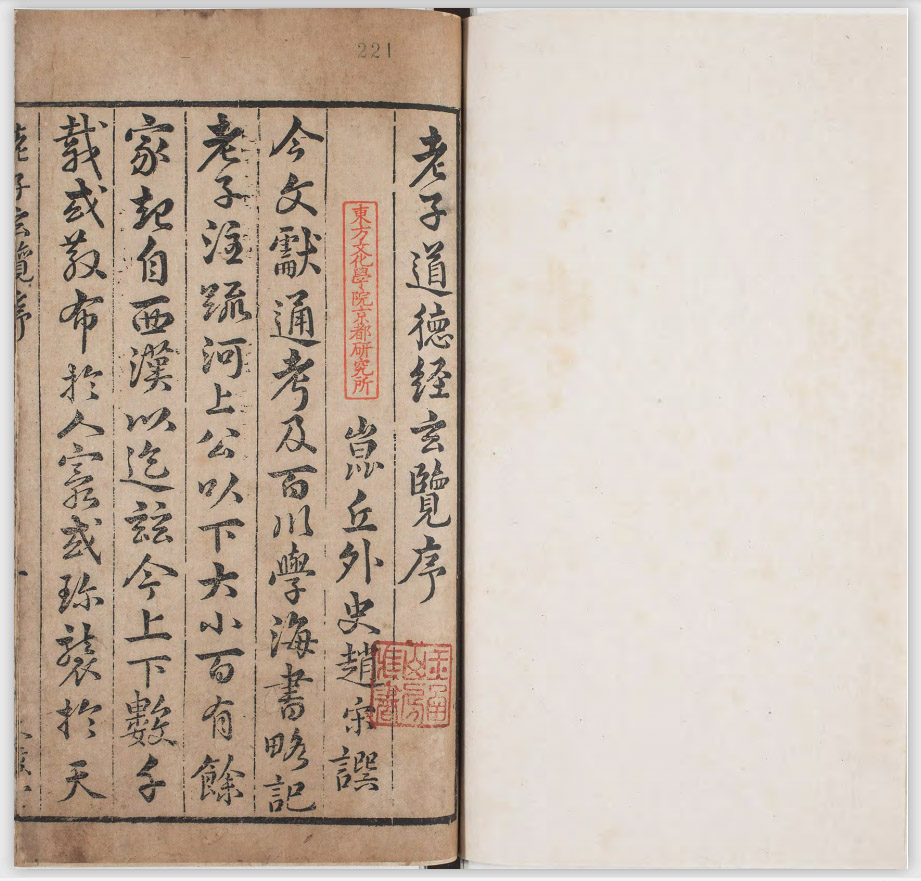 221
老子道德経玄覽序
東方文化學院京都研究所
崑丘外史趙宋譔
今文獻通考及百川學海書略記
老子注疏河上公以下大小百有餘
家起自西漢以迄玆今上下數千
載或散布於人寰或珍襲於天
老子玄覽序
一